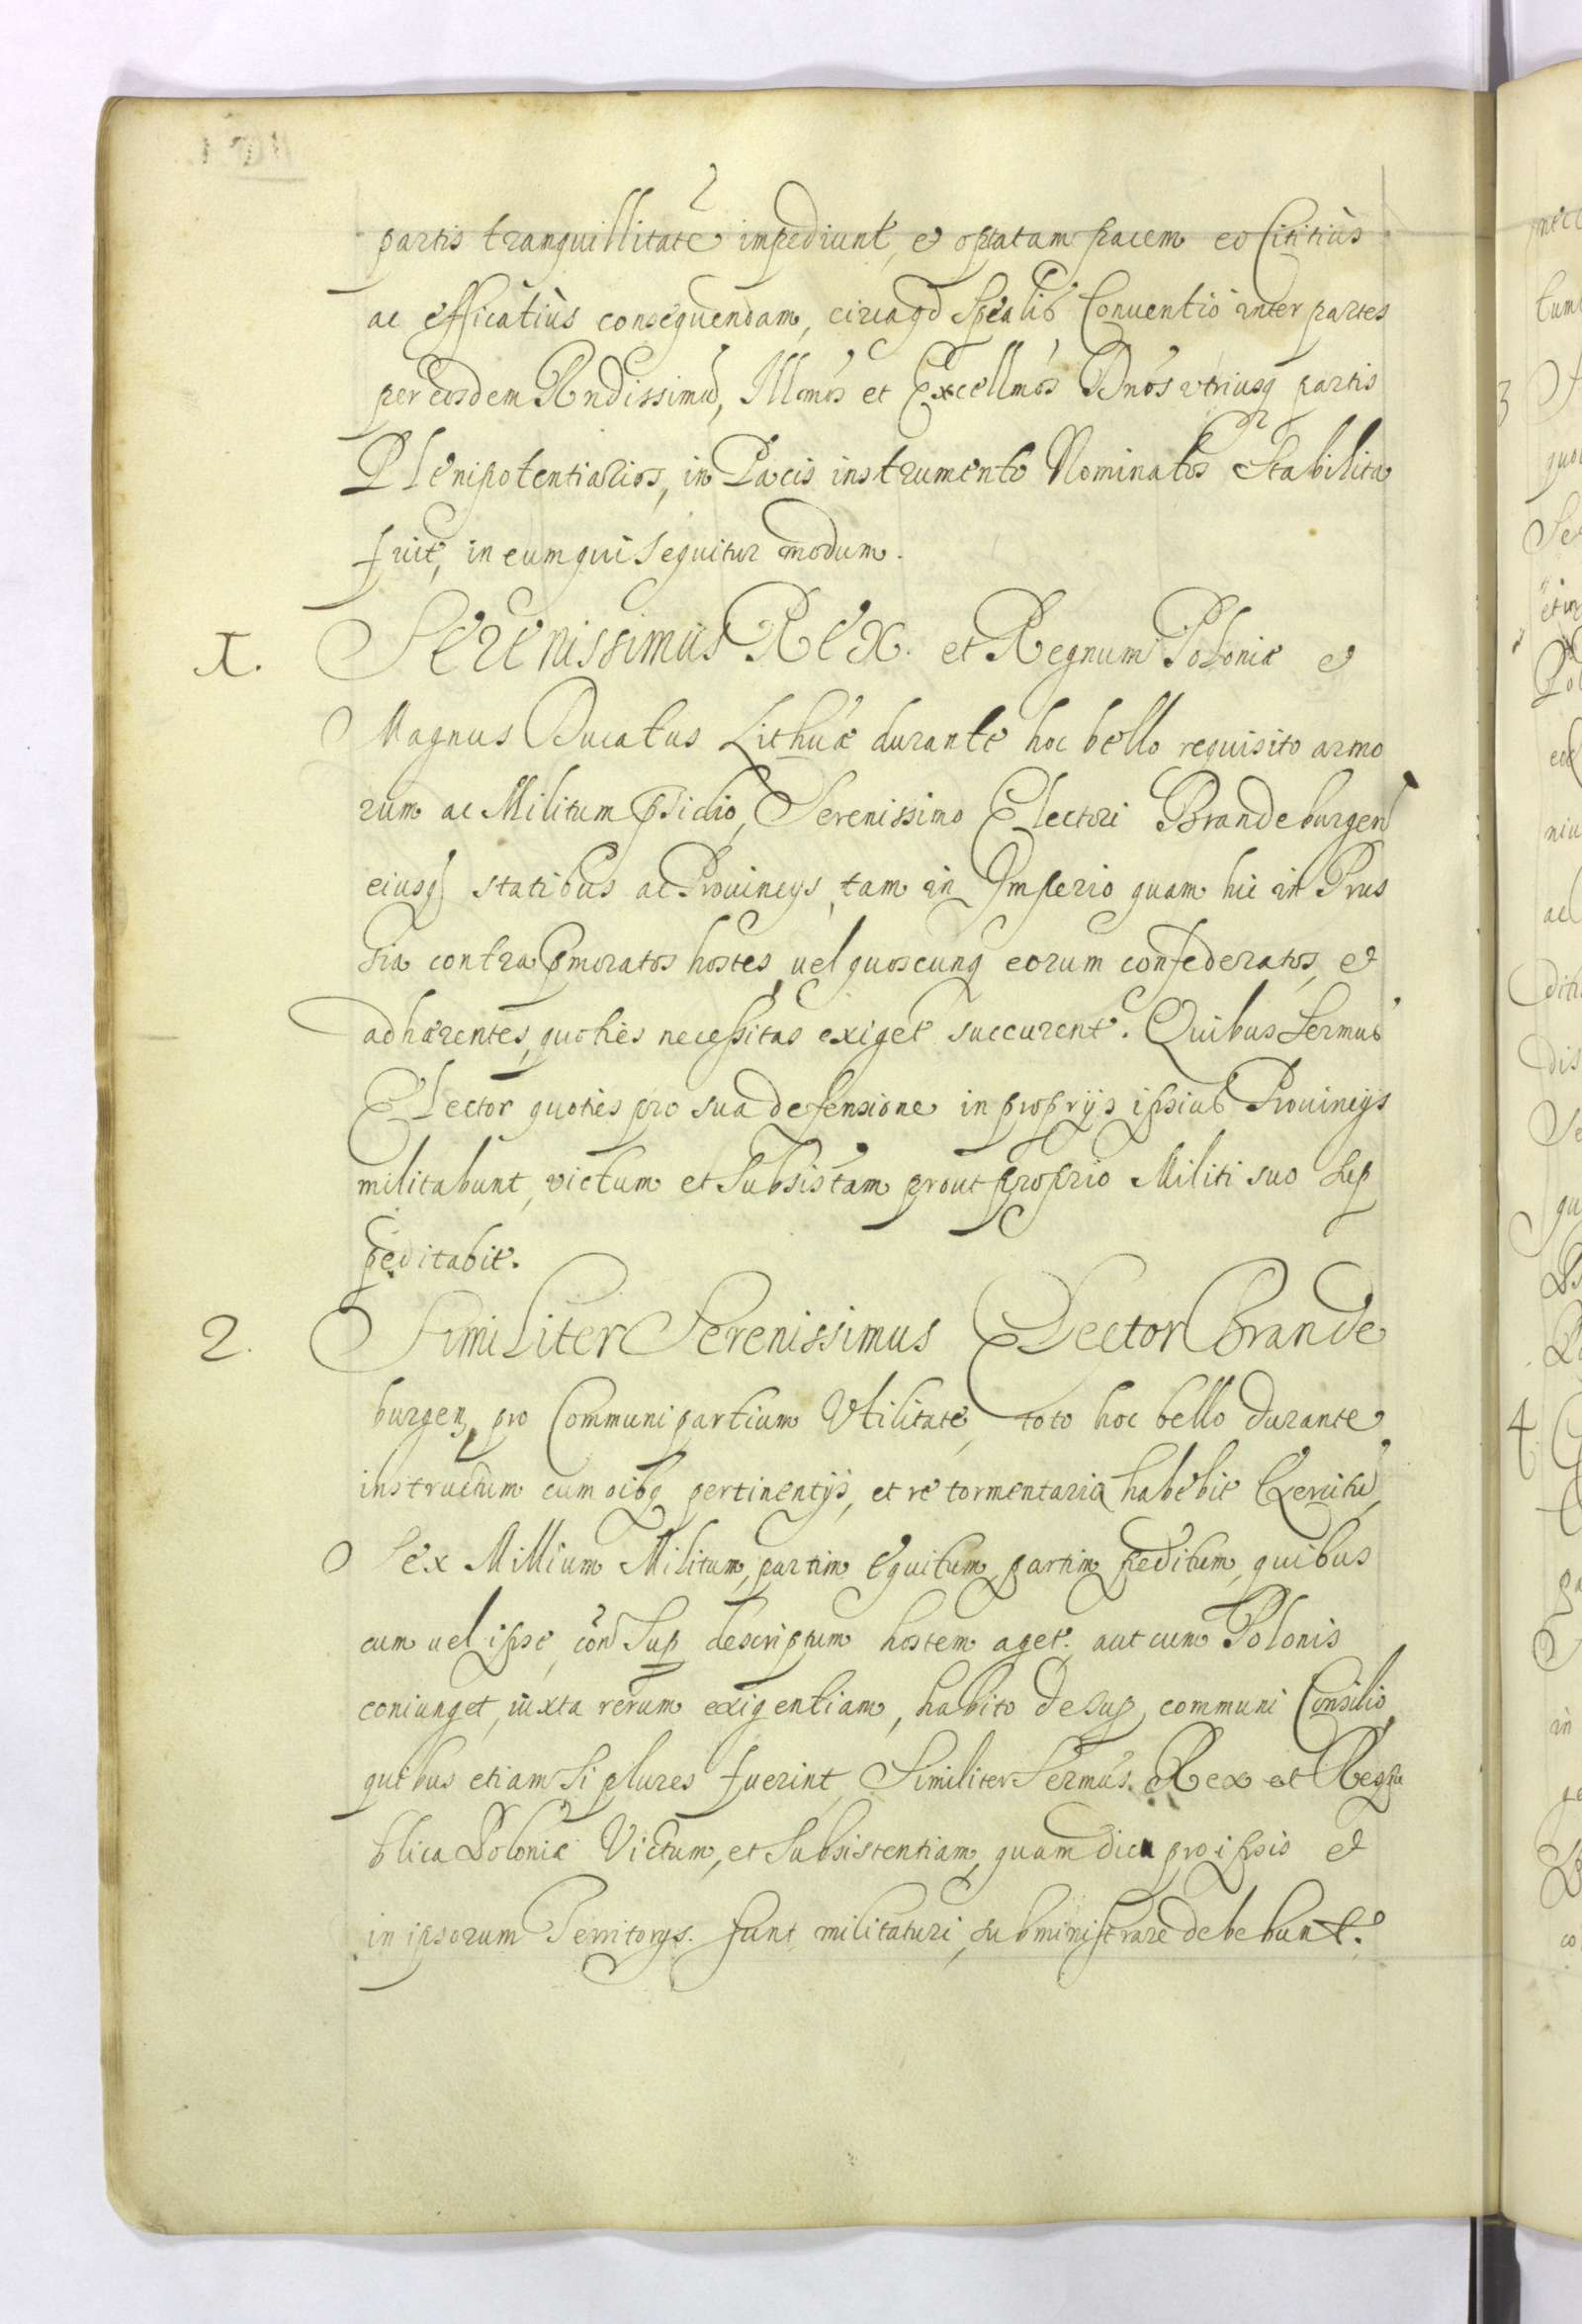 partis tranquillitatē impediunt, et optatam pacem eo Cititiùs
ac efficatiùs consequendam, circa qd Spēalis Conventio inter partes
per eosdem Rndissimū, Illmōs et Excellmōs Dnōs utriusq partis
Plenipotentiarios, in Pacis instrumento Nominatos Stabilita
fuit, in eum qui sequitur modum.
1. Serenissimus Rex et Regnum Poloniæ et
Magnus Ducatus Lithuæ durante hoc bello requisito armo
rum ac Militum psidio, Serenissimo Electori Brandeburgen
eiusq statibus ac Prouincijs, tam in Imperio quam hic in Prus
sia contra pmoratos hostes, uel quoscunq eorum confederatos, et
adhærentes, quoties necessitas exiget succurent. Quibus Sermus
Elector quoties pro sua defensione in proprijs ipsius Prouincijs
militabunt, victum et Subsistām prout proprio Militi suo Sup
peditabit.
2. Similiter Serenissimus Elector Brande
burgen, pro Communi partium Utilitate, toto hoc bello durante
instructum cum oibq pertinentijs, et re tormentaria habebit Exercitū,
Sex Millium Militum, partim Equitum, partim peditum, quibus
cum uel ipse, con Sup descriptum hostem aget. aut cum Polonis
coniunget, iuxta rerum exigentiam, habito desup, communi Consilio,
quibus etiam Si plures fuerint, Similiter Sermus Rex et Respu
blica Poloniæ Victum, et Subsistentiam, quamdiu pro ipsis et
in ipsorum Territorijs sunt militaturi, subministrare debebunt.